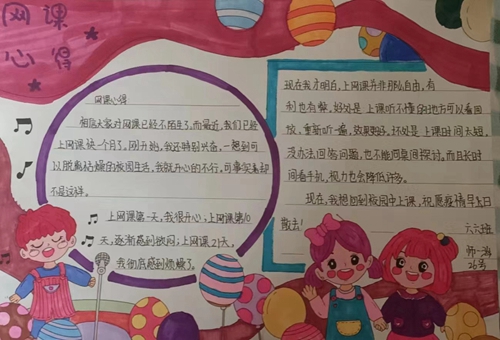 网课
心得
网课心得
相信大家对网课已经不陌生了,而最近,我们已经
上网课快一个月了,刚开始,我还特别兴奋,一想到可
以脱离枯燥的校园生活,我就开心的不行。可事实却
不是这样。
上网课第一天,我很开心;上网课第10
天,逐渐感到欲闷;上网课21天。
我彻底感到烦燥了。
现在我才明白,上网课并非那么自由,有
利也有弊,好处是上课听不懂的地方可以看回
放,重新听一遍,效果更好,坏处是上课时间太短,
没办法回答问题,也不能同桌间探讨。而且长时
间看手机,视力也会降低许多。
现在,我想回到校园中上课,祝愿疫情早日
散去!
六六班
师一
26号